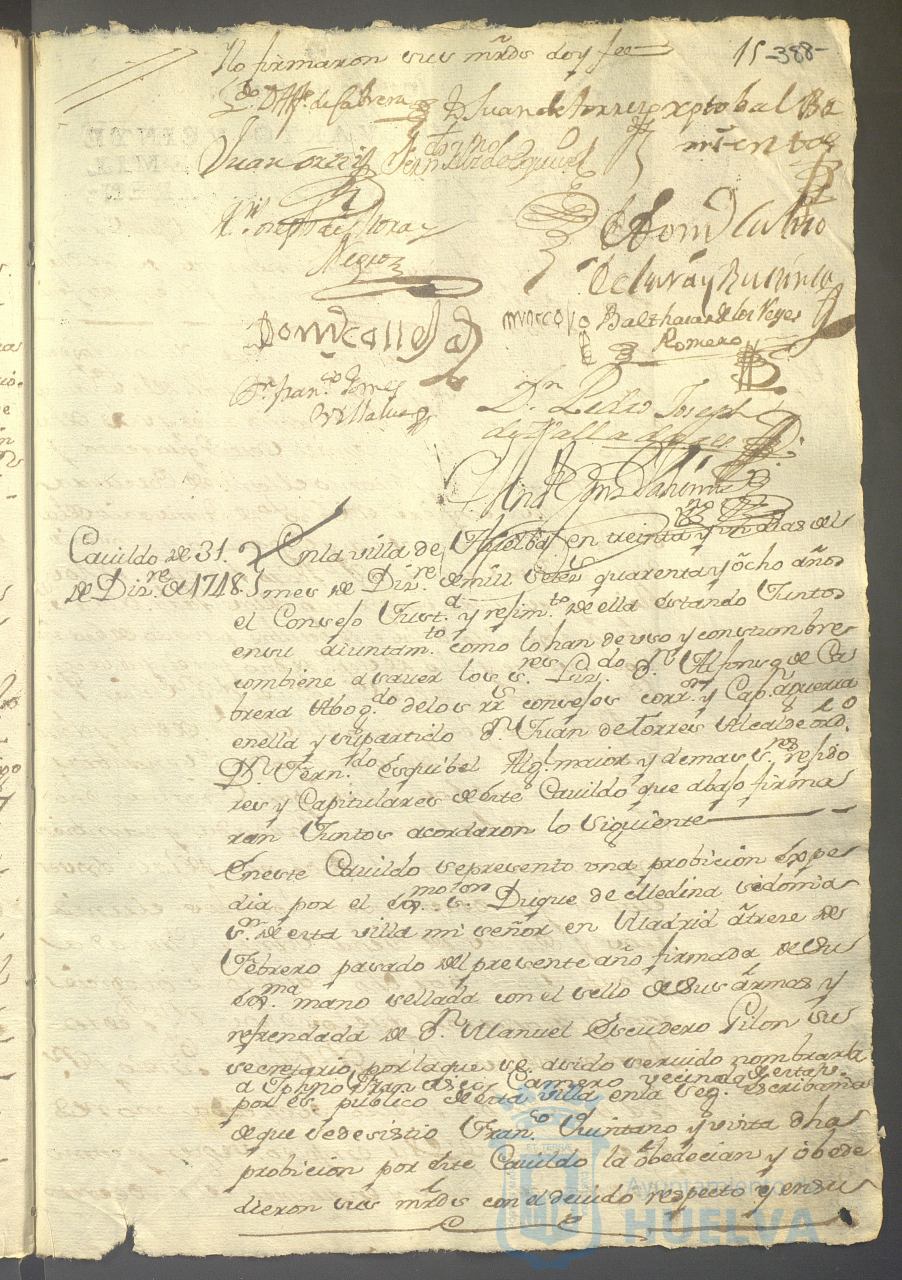 15 -388-
Lo firmaron sus mrds doy fee
Ldo Dn Alfo. de Cabrera Dn Juan de torres xptobal Ba
mientos
Juan ortiz Dn Fern
Negron
Domo Calle
Marcolo Balthasar de los Reyes
Romero
Dn franco Gomes
Villalva
Dn Pedro Joseph
de Valladares
Cavildo de 31.
de Dizre de 1748.
En la villa de Huelba en treinta y un dias del
mes de Dizre de mill setezs quarenta y ocho años
el Consejo Justa y rejimto de ella estando Juntos
en su aiuntamto como lo han de uso y constumbres
combiene a saver los sres Lizdo Dn Alfonso de Ca
brera Abogdo de los rs consejos corror y Capn a guerra
en ella y su partido Dn Juan de Torres Alcalde ordo
Dn Ferndo Esquibel Algl maior y demas sres rejido
res y Capitulares de este Cavildo que abajo firma
ran Juntos acordaron lo siguiente
En este Cavildo se presento una probicion expe
dia por el Exmo sor Duque de Medina sidonia
sr de esta villa mi señor en Madrid a trese de
Febrero pasado del presente año firmada de su
Exma mano sellada con el sello de sus armas y
refrendada de Dn Manuel Escudero Gilon su
secretario por la que se asido servido nombrar la
a Tphno Francisco Camero vecino de esta vª
por es publico de esta villa en la seg. escribania
de que se desistio Franco Quintano y vista dha
probicion por este Cavildo la obedecian y obede
dieron sus mrds con el devido respecto y en su
Ayuntamiento
HUELVA